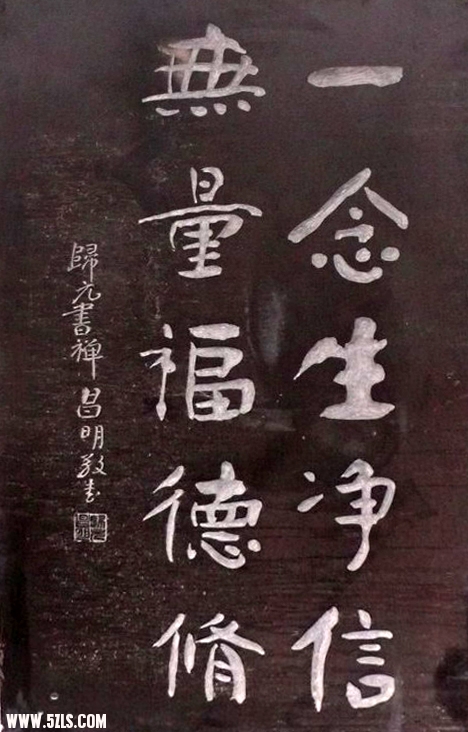 一念生净信
無量福德脩
歸元書禅 昌明敬
WWW.5ZLS.COM